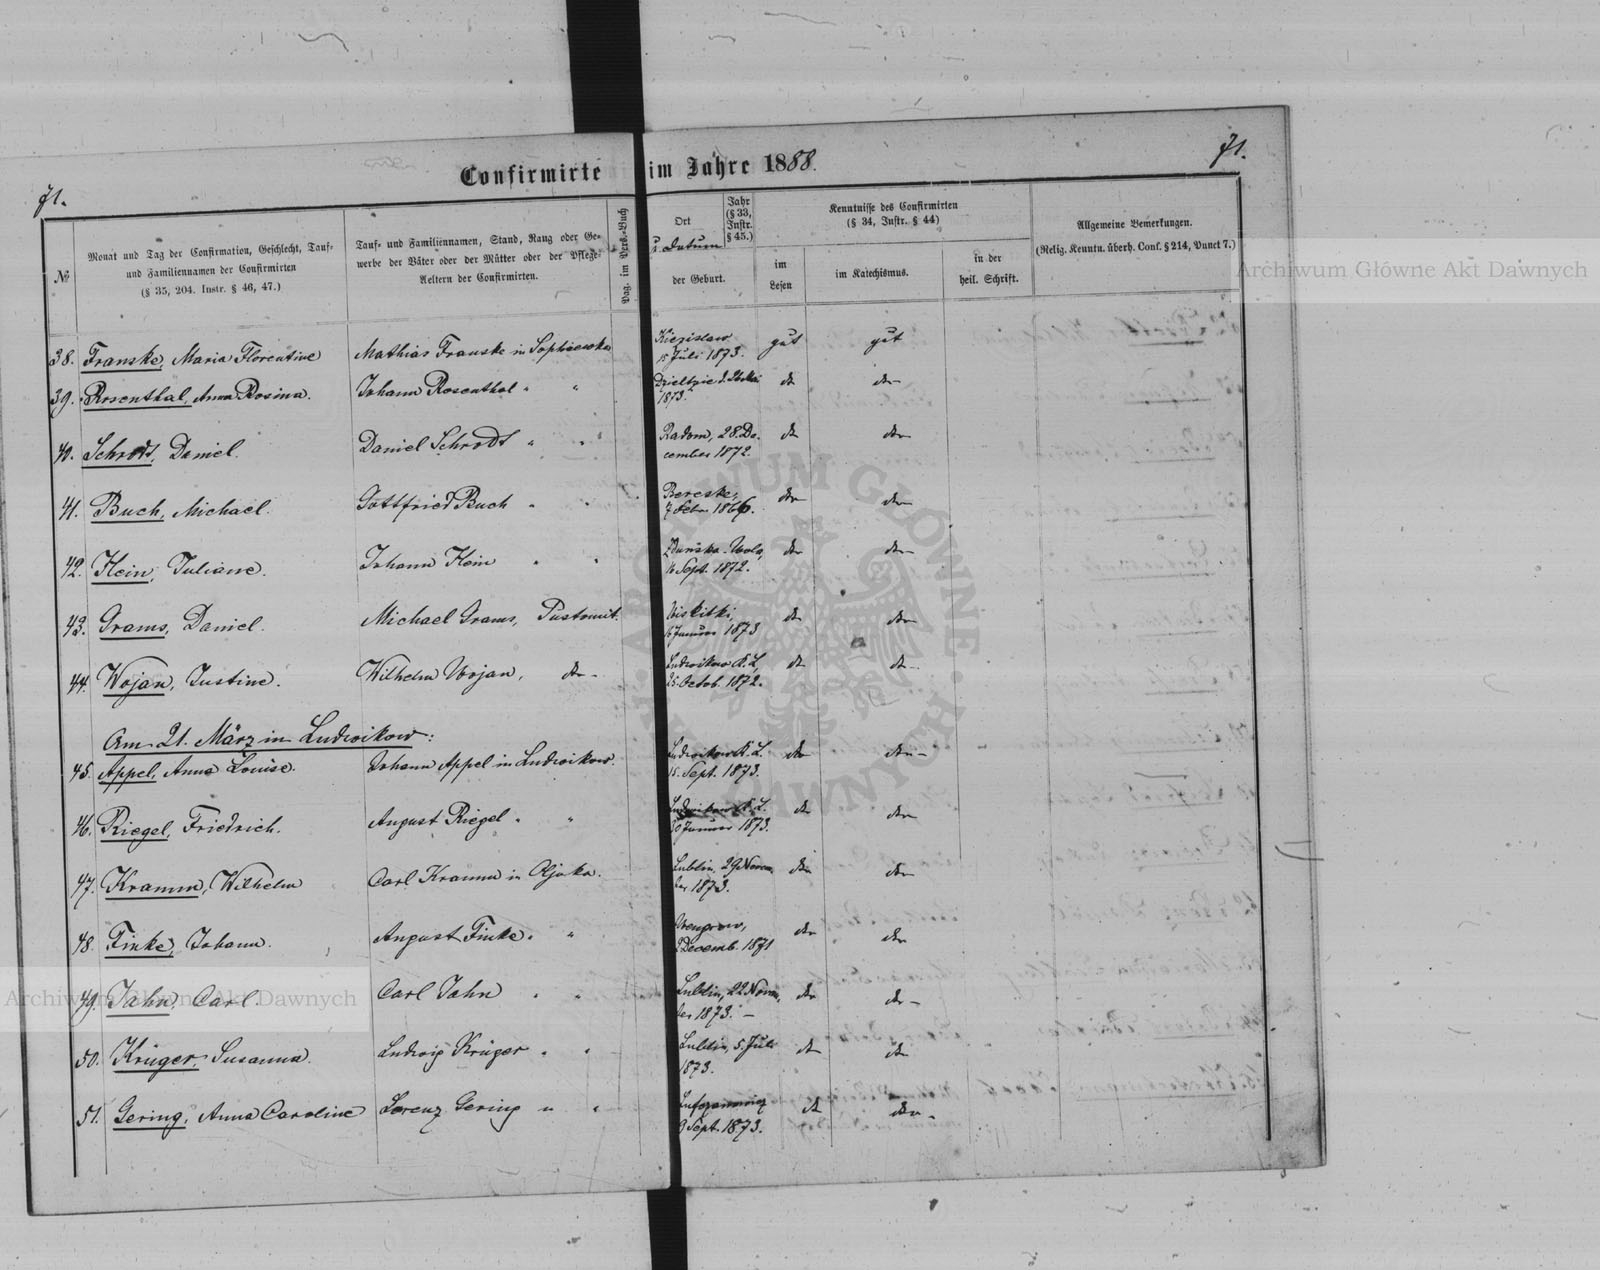 71.
71.
Confirmirte im Jahre 1888.
№
Monat und Tag der Confirmation, Geschlecht, Tauf-
und Familiennamen der Confirmirten
(§ 35, 204. Instr. § 46, 47.)
Tauf- und Familiennamen, Stand, Rang oder Ge-
werbe der Väter oder der Mütter oder der Pflege-
Aeltern der Confirmirten.
Pag. im Pers.-Buch
Ort
u. Datum
der Geburt.
Jahr
(§ 33,
Instr.
§ 45.)
Kenntnisse des Confirmirten
(§ 34, Instr. § 44)
im
Lesen
im Katechismus.
in der
heil. Schrift.
Allgemeine Bemerkungen.
(Relig. Kenntn. überh. Conf. § 214, Punct 7.)
38. Franske, Maria Florentine Mathias Franske in Sophiewka
15 Juli 1873. gut gut
39. Rosenthal, Anna Rosina. Johann Rosenthal " "
1873.
40. Schrodt, Daniel. Daniel Schrodt " " Radom, 28. De-
cember 1872.
41. Buch, Michael. Gottfried Buch " "
7 Febr. 1866.
42. Klein, Juliane. Johann Klein " " Zdunska-Wola,
16 Sept. 1872.
43. Grams, Daniel. Michael Grams, Pustomit. Wiskitki,
Januar 1873
44. Wojan, Justine. Wilhelm Wojan, do- Ludwikow K. L.
25. Octob. 1872.
Am 21. März in Ludwikow:
45. Appel, Anna Louise. Johann Appel in Ludwikow. Ludwikow K. L.
15. Sept. 1873.
46. Riegel, Friedrich. August Riegel " " Ludwikow K. L.
30 Januar 1873.
47. Kramm, Wilhelm Carl Kramm in Lublin, 29 Novem-
ber 1873.
48. Finke, Johann. August Finke " " Wengrow,
Decemb. 1871
49. Jahn, Carl. Carl Jahn " " Lublin, 22 Novem-
ber 1873. —
50. Krüger, Susanna. Ludwig Krüger " " Lublin, 5. Juli
1873.
51. Gering, Anna Caroline Lorenz Gering " "
Sept. 1873.
Archiwum Główne Akt Dawnych
Archiwum Główne Akt Dawnych
ARCHIWUM GŁÓWNE AKT DAWNYCH